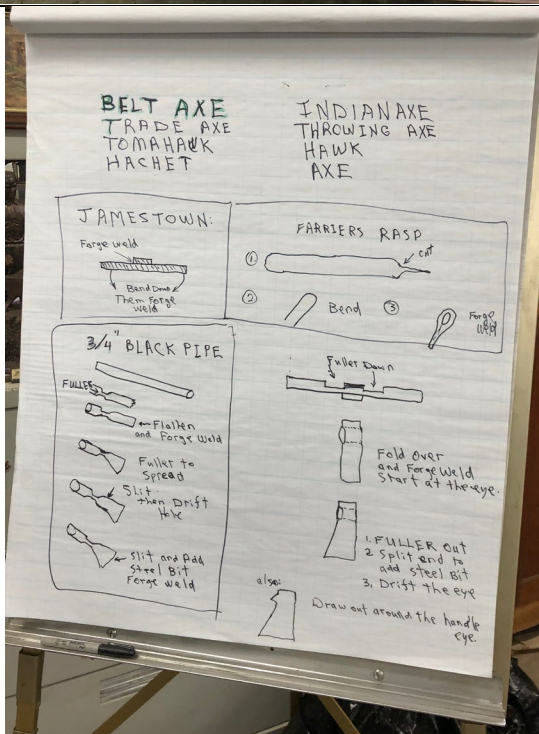 BELT AXE
TRADE AXE
TOMAHAWK
HACHET
INDIAN AXE
THROWING AXE
HAWK
AXE
JAMESTOWN:
Forge weld
Bend Down
Them Forge
weld
FARRIERS RASP
1.
cut
2
Bend
3
Forge
Weld
3/4" BLACK PIPE
FULLER
Flatten
and Forge Weld
Fuller to
Spread
Slit
then Drift
Hole
Slit and Add
Steel Bit
Forge Weld
Fuller Down
Fold Over
and Forge Weld
Start at the eye.
1. FULLER Out
2 Split end to
add Steel Bit
3. Drift the eye
also:
Draw out around the handle
eye.